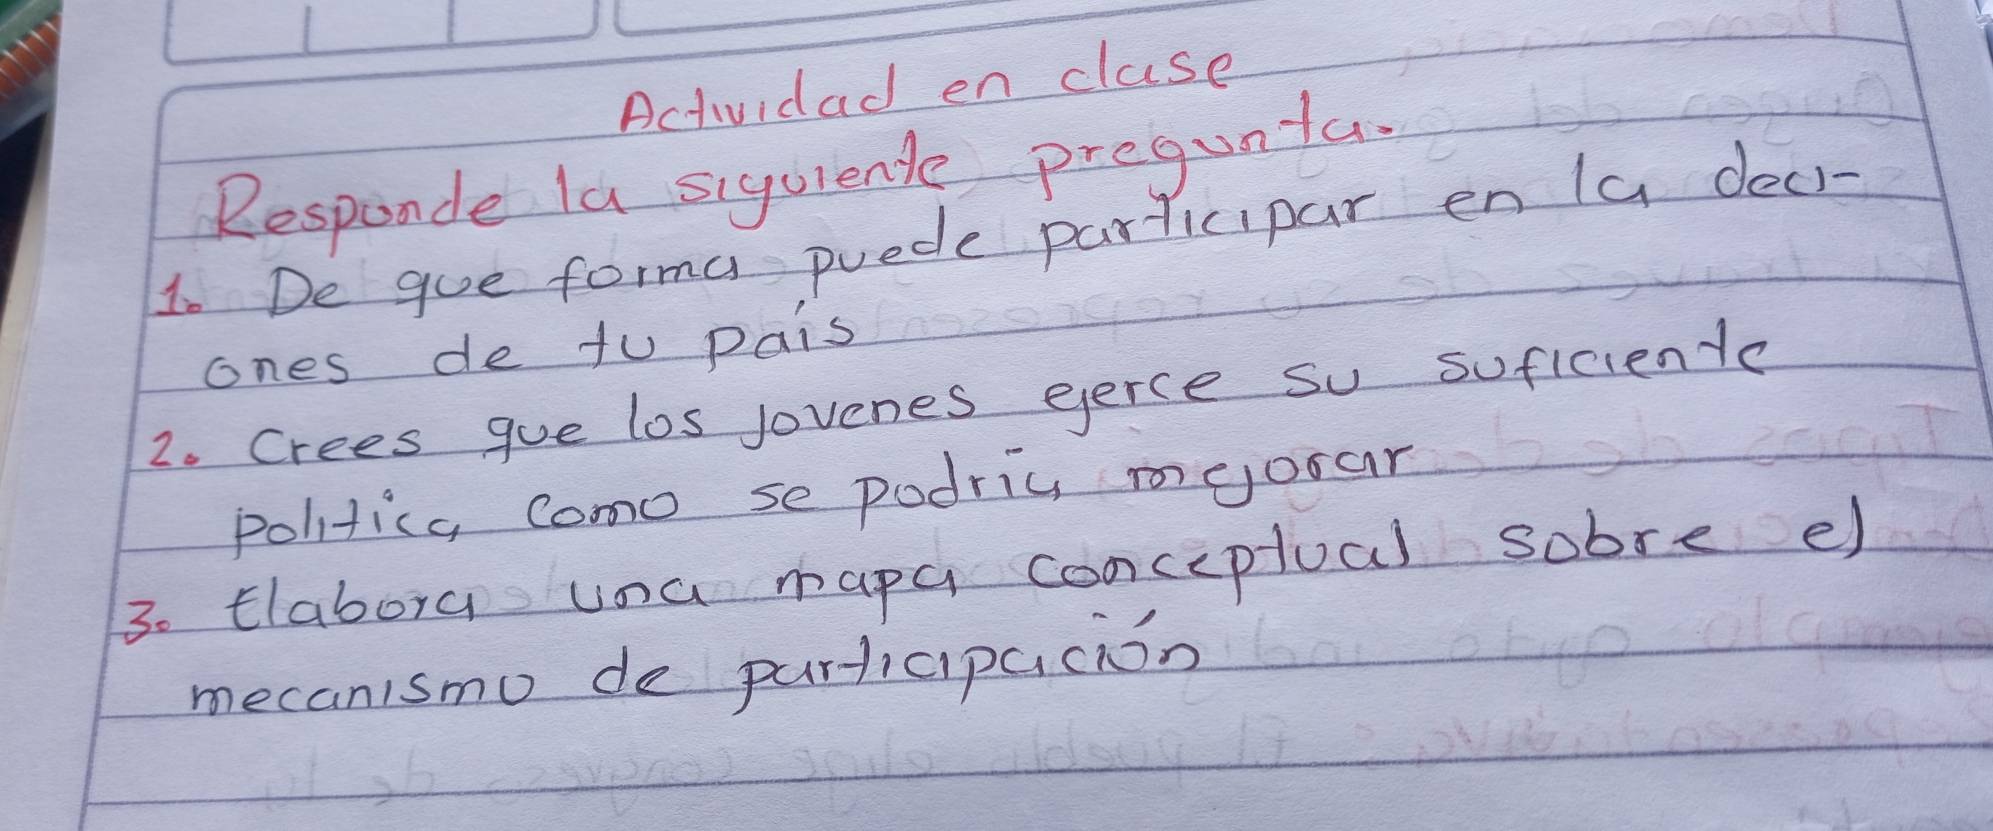 Actividad en clase
Responde la siguiente pregunta.
1. De que forma puede participar en la deci-
ones de tu país
2. Crees que los jovenes ejerce su suficiente
politica como se podria mejorar
3. Elabora una mapa conceptual sobre el
mecanismo de participación